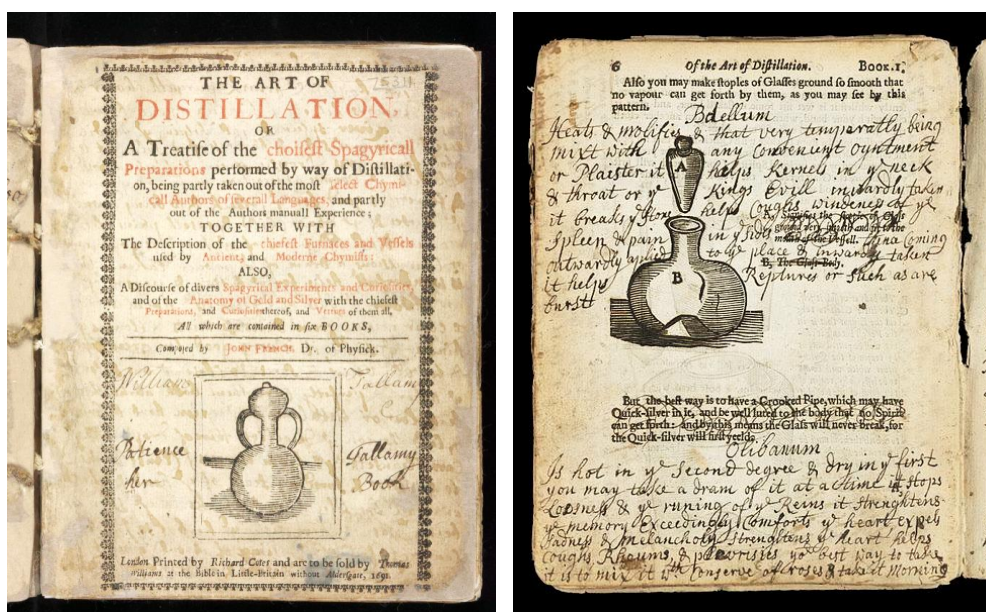 THE ART OF
DISTILLATION,
OR
A Treatise of the choisest Spagyricall
Preparations performed by way of Distillati-
on, being partly taken out of the most select Chymi-
call Authors of severall Languages, and partly
out of the Authors manuall Experience;
TOGETHER WITH
The Description of the chiefest Furnaces and Vessels
used by Ancient, and Moderne Chymists:
ALSO,
A Discourse of divers Spagyricall Experiments and Curiosities,
and of the Anatomy of Gold and Silver with the chiefest
Preparations, and Curiosities thereof, and Vertues of them all,
All which are contained in six BOOKS,
Composed by JOHN FRENCH, Dr. of Physick.
William Tallamy
Patience Tallamy
her Book
London Printed by Richard Cotes and are to be sold by Thomas
Williams at the Bible in Little-Britain without Aldersgate, 1651.
6 Of the Art of Distillation. BOOK.I.
Also you may make stoples of Glasses ground so smooth that
no vapour can get forth by them, as you may see by this
pattern.
Bdellum
Heats & molifies & that very temperatly being
mixt with any Convenient oyntment
or Plaister it helps Kernels in ye neck
& throat or ye Kings Evill inwardly taken
it breaks ye stone helps Coughs windenes of ye
Spleen & pain in ye sides Coming
outwardly aplied to ye place & inwardly taken
it helps Reptures or such as are
burstt
A
B
B, The Glass-Body.
But the best way is to have a Crooked Pipe, which may have
Quick-silver in it, and be well luted to the body that no Spirit
can get forth: and by this means the Glass will never break, for
the Quick-silver will first yeeld.
Olibanum
Is hot in ye second degree & dry in ye first
you may take a dram of it at a time it stops
Loosness & ye runing of ye Reins it Strenghtens
ye memory Exceedingly Comforts ye heart expels
Sadness & melancholy Strengtens ye heart helps
Coughs Rheums, & plewrisies yr best way to take
it is to mix it wth Conserve of roses & take it morning